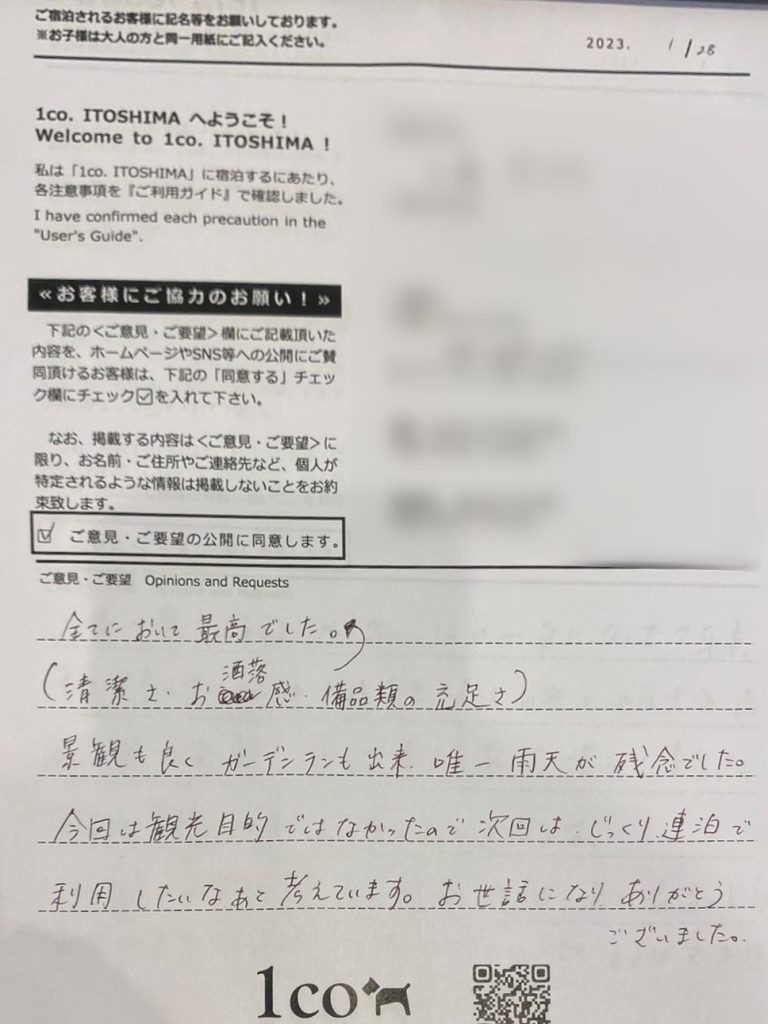 ご宿泊されるお客様に記名等をお願いしております。
※お子様は大人の方と同一用紙にご記入ください。
2023. 1/28
1co. ITOSHIMA へようこそ！
Welcome to 1co. ITOSHIMA !
私は「1co. ITOSHIMA」に宿泊するにあたり、
各注意事項を『ご利用ガイド』で確認しました。
I have confirmed each precaution in the
"User's Guide".
≪お客様にご協力のお願い！≫
下記の<ご意見・ご要望>欄にご記載頂いた
内容を、ホームページやSNS等への公開にご賛
同頂けるお客様は、下記の「同意する」チェッ
ク欄にチェック☑を入れて下さい。
なお、掲載する内容は<ご意見・ご要望>に
限り、お名前・ご住所やご連絡先など、個人が
特定されるような情報は掲載しないことをお約
束致します。
☑ ご意見・ご要望の公開に同意します。
ご意見・ご要望 Opinions and Requests
全てにおいて最高でした。
(清潔さ・お洒落感・備品類の充足さ)
景観も良く ガーデンランも出来、唯一雨天が残念でした。
今回は観光目的ではなかったので次回は、じっくり連泊で
利用したいなあと考えています。お世話になりありがとう
ございました。
1co